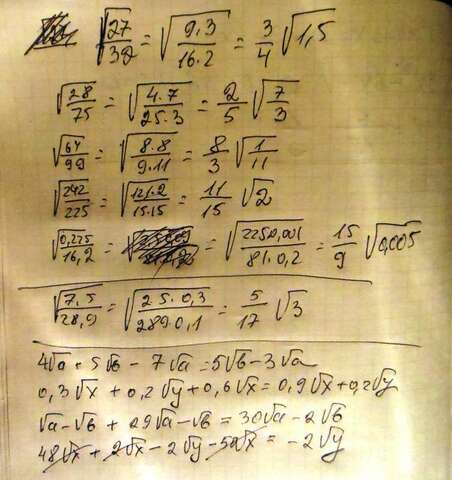 √(27/32) = √(9·3/16·2) = 3/4 √1,5
√(28/75) = √(4·7/25·3) = 2/5 √(7/3)
√(64/99) = √(8·8/9·11) = 8/3 √(1/11)
√(242/225) = √(121·2/15·15) = 11/15 √2
√(0,225/16,2) = = √(225·0,001/81·0,2) = 15/9 √0,005
√(7,5/28,9) = √(25·0,3/289·0,1) = 5/17 √3
4√a + 5√b - 7√a = 5√b - 3√a
0,3√x + 0,2√y + 0,6√x = 0,9√x + 0,2√y
√a - √b + 29√a - √b = 30√a - 2√b
48√x + 2√x - 2√y - 50√x = -2√y